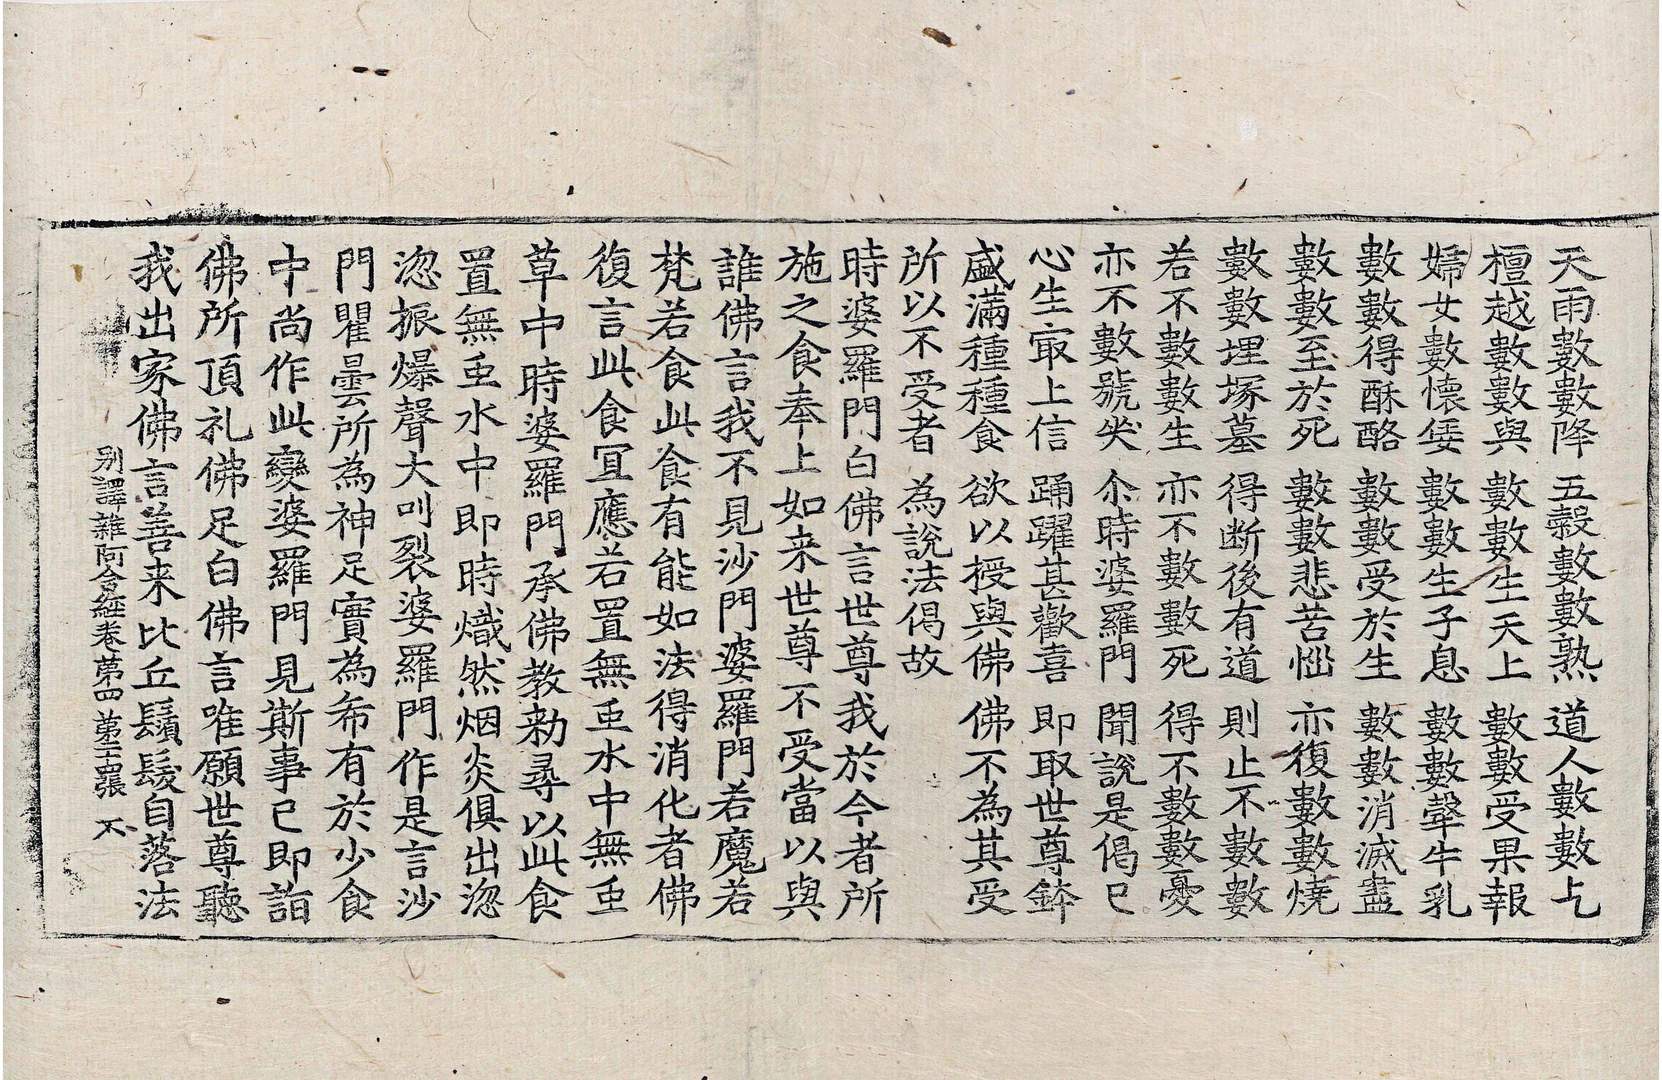 天雨數數降　五糓數數熟　道人數數乞
檀越數數與　數數生天上　數數受果報
婦女數懷𡜟　數數生子息　數數㲉牛乳
數數得酥酪　數數受於生　數數消滅盡
數數至於死　數數悲苦惱　亦復數數燒
數數埋塚墓　得断後有道　則止不數數
若不數數生　亦不數數死　得不數數憂
亦不數號哭　尒時婆羅門　聞說是偈已
心生㝡上信　踊躍甚歡喜　即取世尊鉢
盛滿種種食　欲以授與佛　佛不為其受
所以不受者　為說法偈故
時婆羅門白佛言世尊我於今者所
施之食奉上如来世尊不受當以與
誰佛言我不見沙門婆羅門若魔若
梵若食此食有能如法得消化者佛
復言此食冝應若置無䖝水中無䖝
草中時婆羅門承佛教勑尋以此食
置無䖝水中即時熾然烟炎俱出㳷
㳷振爆聲大叫裂婆羅門作是言沙
門瞿曇所為神足實為希有於少食
中尚作此變婆羅門見斯事已即詣
佛所頂礼佛足白佛言唯願世尊聽
我出家佛言善来比丘鬚髮自落法
別譯雜阿含經卷第四　第二張　不